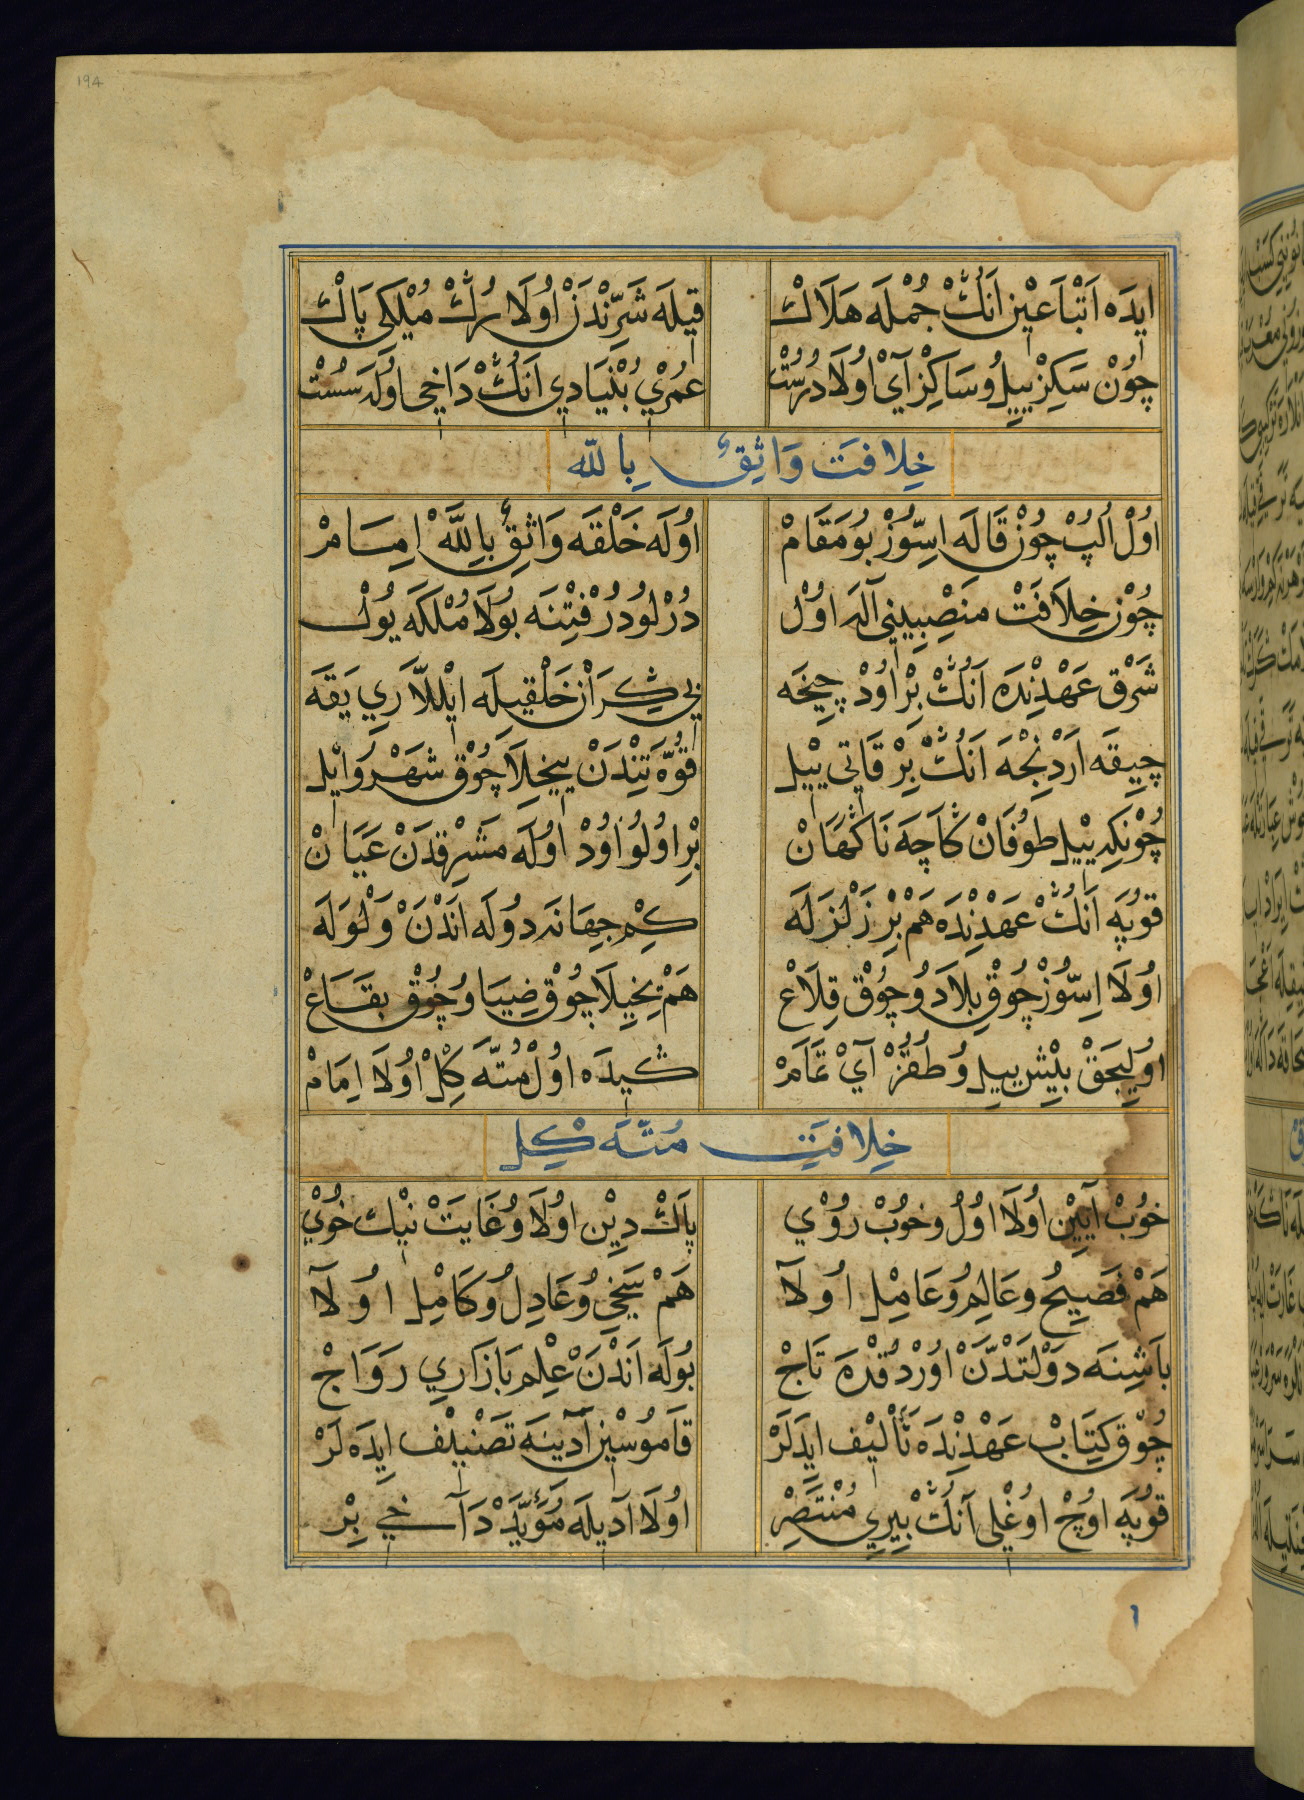 ۱۹۴
ايدَه اَتْبَاعيْن اَنُكْ جُمْلَه هَلَاكْ قيلَه شَرِّنْدَنْ اوُلَا رُكْ مُيْلَكى پَاكْ
چوُنْ سَكِزْ ييِلُ وُ سَاكِزْ آيْ اوُلَا دُرُسْت عُمْرىْ بُنْيَادى اَنُكْ دَاخِى اوُلَه سُسْت
خِلافَتِ وَاثِقُ بِاللّٰه
اوُلْ اُلُپْ چوُنْ قَالَه اسِّوُزْ بوُ مَقَامْ اوُلَه خَلْقَه وَاثِقُ بِاللَّهْ امَامْ
چوُنْ خِلَافَتْ مَنْصِبِينى آلَه اوُلْ دُرْلوُ دُرْ فِتْنَه بوُلَا مُلْكَه يوُلْ
شَرْق عَهْدِنْدَه اَنُكْ بِرْ اوُدْ چيخَه بى كِرَانْ خَلْقيلَه ايْللَّارِي يَقَه
چيِقَه اَرْدِنْجَه اَنُكْ بِرْ قَاتى يْيل قُوَّتِنْدَنْ ييخِلَا چوُق شَهْر وُ ايْل
چوُنكِه يْيل طوُفَانْ كَاچَه نَاكَهَانْ بْرِ اوُلوُ اوُدْ اوُلَه مَشْرِقدَنْ عَيَانْ
قوُپَه اَنُكْ عَهْدِنْدَه هَمْ بْرِ زَلْزَلَه كِمْ جِهَانَه دوُلَه اَنْدَنْ وَلْوَلَه
اوُلَا اسِّوُزْ چوُق بِلَاد وُ چوُق قِلَاعْ هَمْ يخِيلَا چوُق ضِيَا وُ چوُق بقَاعْ
اوُلِيجَقْ بيْش ييِل وُ طُقُزْ آيْ تَمَامْ كيدَه اوُلْ مُتَّه كِلْ اوُلَا امَامْ
خِلافَتِ مُتَّه كِل
خوُبْ آييْن اوُلَا اوُلُ و خوُبْ روُي پَاكْ ديْن اوُلَا وُ غَايَتْ نيْك خوُي
هَمْ فَصِيحُ و عَالِمُ وُ عَامِل اوُلَآ هَمْ سَخِى وُ عَادِلُ وُ كَامِل اوُلَآ
بَاشِنَه دَوْلَتْدَنْ اوُرْدُقْدَه تَاجْ بوُلَه اَنْدَنْ عِلْم بَازَارِي رَوَاجْ
چوُق كِتَابْ عَهْدِنْدَه تَأْليْف ايدَلَرْ قَاموُسيْن آدينَه تَصْنيْف ايدَه لَرْ
قوُپَه اوُچْ اوُغْلى اَنُكْ بيرِي مُنْتَصِرْ اوُلَا آديلَه مُؤَيَّدْ دَآخى بِرْ